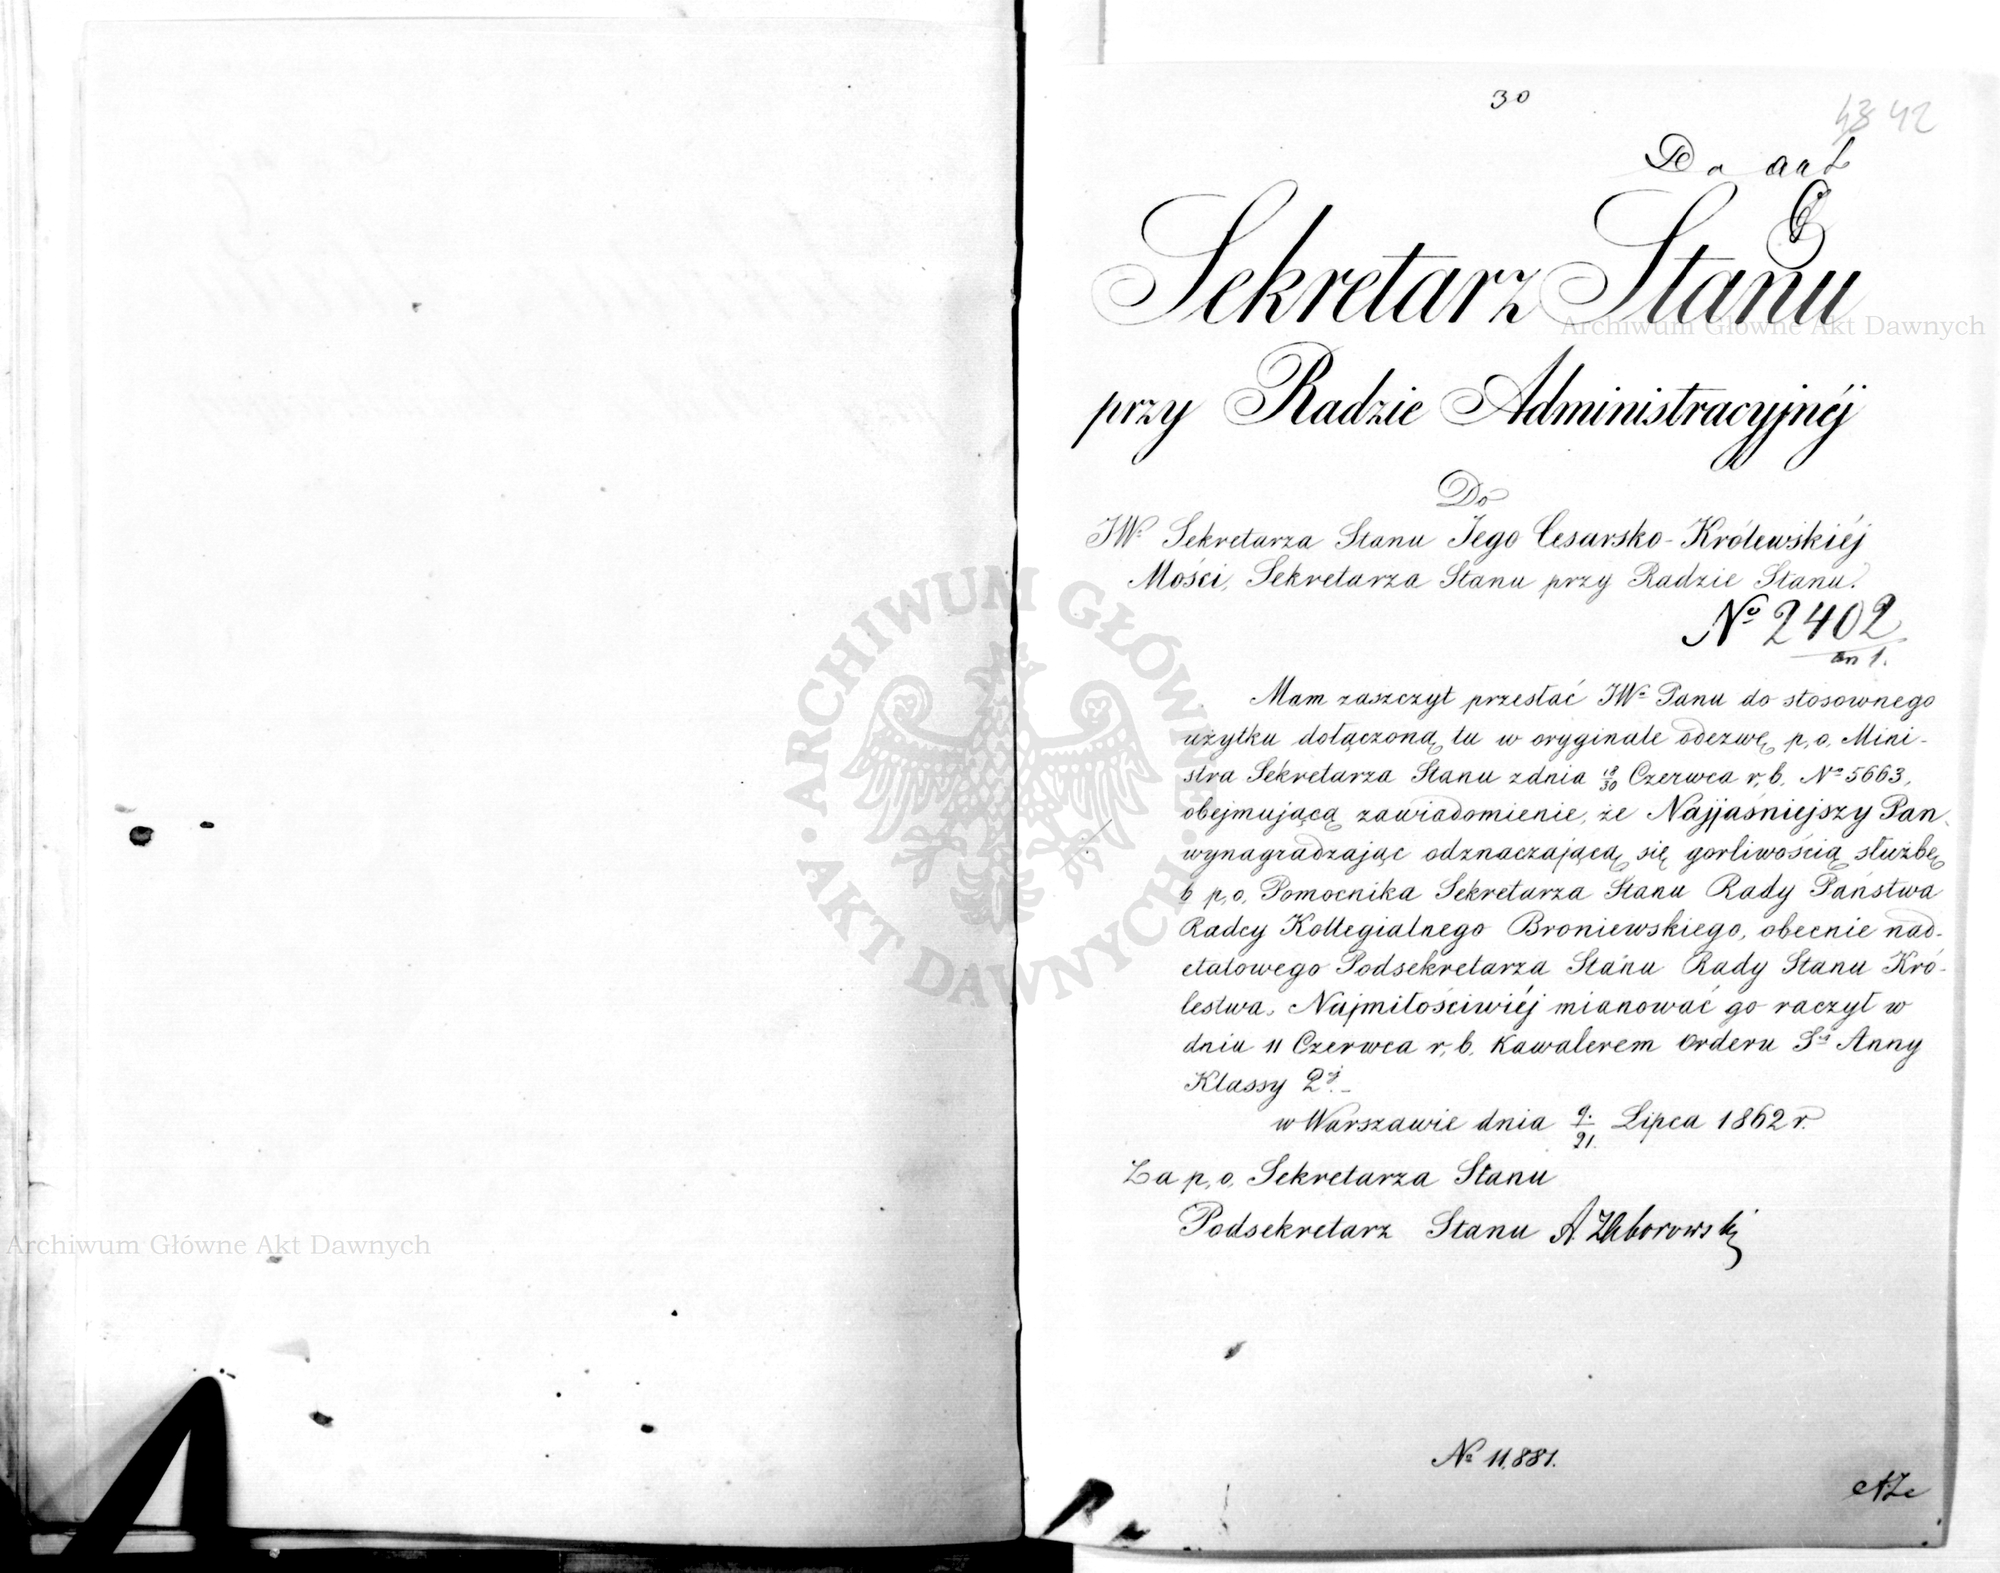 30
43 42
Do akt
Sekretarz Stanu
przy Radzie Administracyjnéj
Do
JWo Sekretarza Stanu Jego Cesarsko-Królewskiéj
Mości, Sekretarza Stanu przy Radzie Stanu.
No 2402
an 1.
Mam zaszczyt przesłać JWo Panu do stosownego
użytku dołączoną tu w oryginale odezwę p,o, Mini-
stra Sekretarza Stanu z dnia 18/30 Czerwca r, b, No 5663,
obejmującą zawiadomienie, że Najjaśniejszy Pan,
wynagradzając odznaczającą się gorliwością służbę
b p,o, Pomocnika Sekretarza Stanu Rady Państwa
Radcy Kollegialnego Broniewskiego, obecnie nad-
etatowego Podsekretarza Stanu Rady Stanu Kró-
lestwa, Najmiłościwiéj mianować go raczył w
dniu 11 Czerwca r, b, Kawalerem Orderu Sej Anny
Klassy 2éj.-
w Warszawie dnia 9/21 Lipca 1862 r.
Za p,o, Sekretarza Stanu
Podsekretarz Stanu A. Zaborowski
No 11,881.
Archiwum Główne Akt Dawnych
Archiwum Główne Akt Dawnych
ARCHIWUM GŁÓWNE · AKT DAWNYCH ·